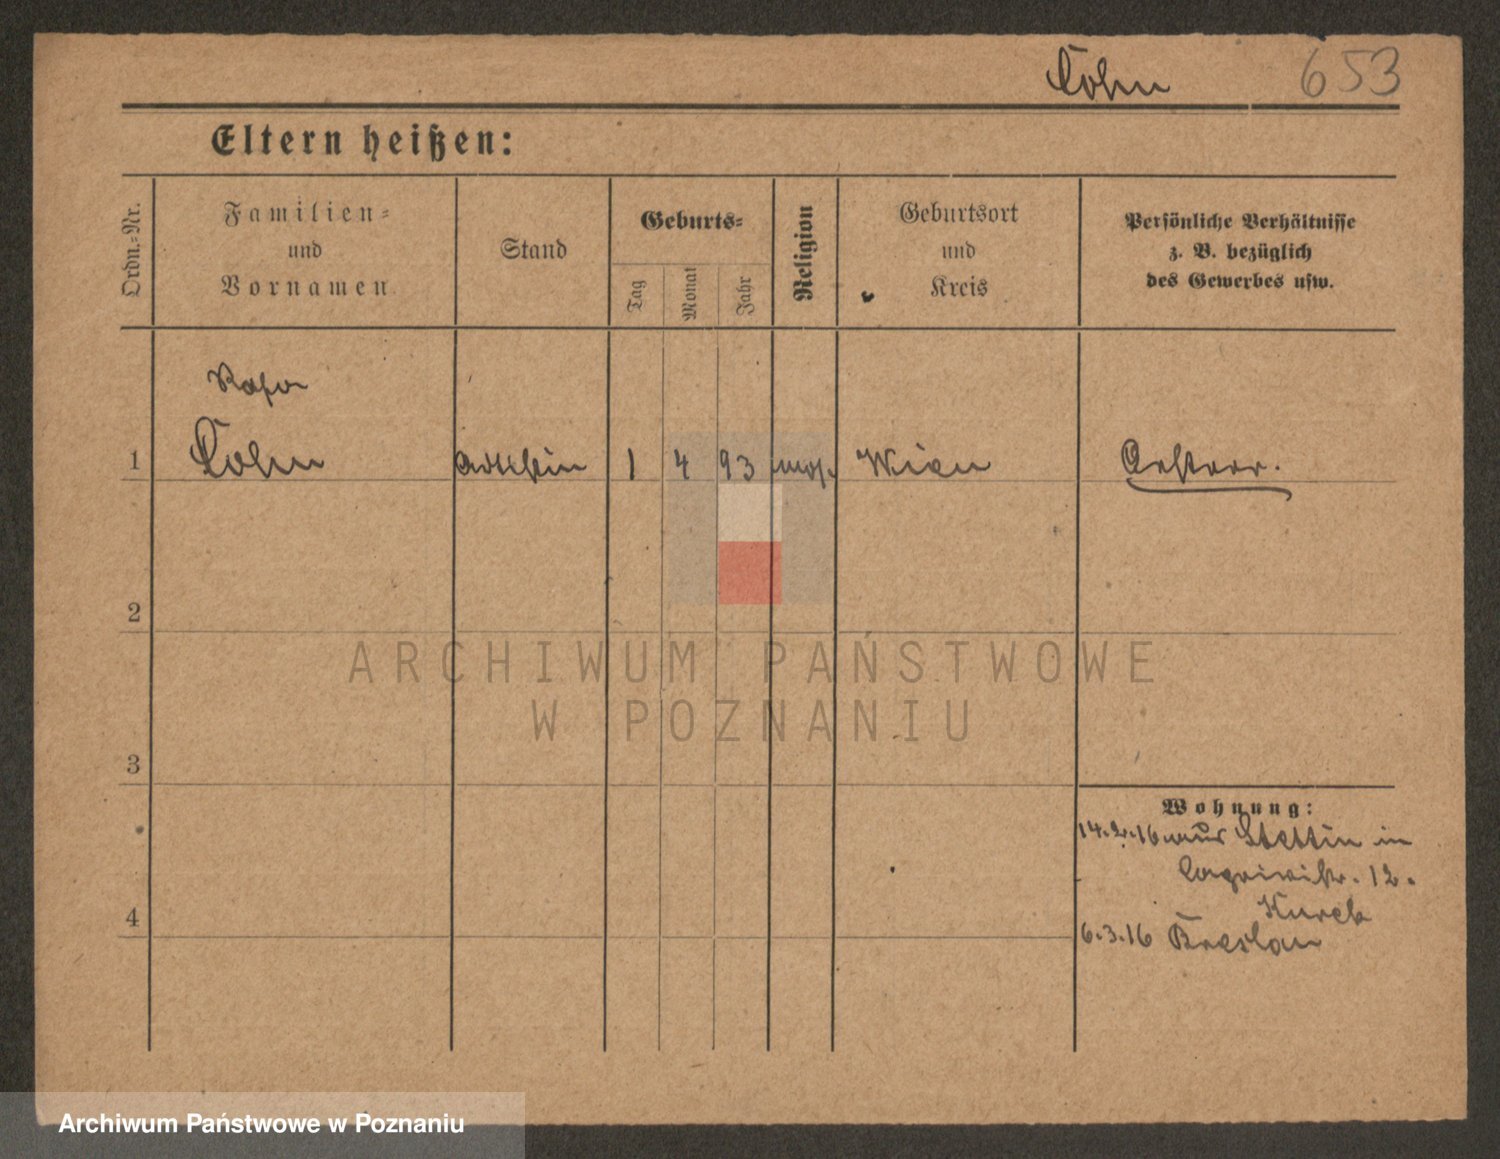 Cohn 653
Eltern heißen:
Ordn.-Nr.
Familien-
und
Vornamen
Stand
Geburts-
Tag
Monat
Jahr
Religion
Geburtsort
und
Kreis
Persönliche Verhältnisse
z. B. bezüglich
des Gewerbes usw.
Rosa
1 Cohn Artistin 1 4 93 mos. Wien Oesterr.
2
3
4
Wohnung:
14.2.16 aus Stettin in
12.
6.3.16 Breslau
ARCHIWUM PAŃSTWOWE
W POZNANIU
Archiwum Państwowe w Poznaniu